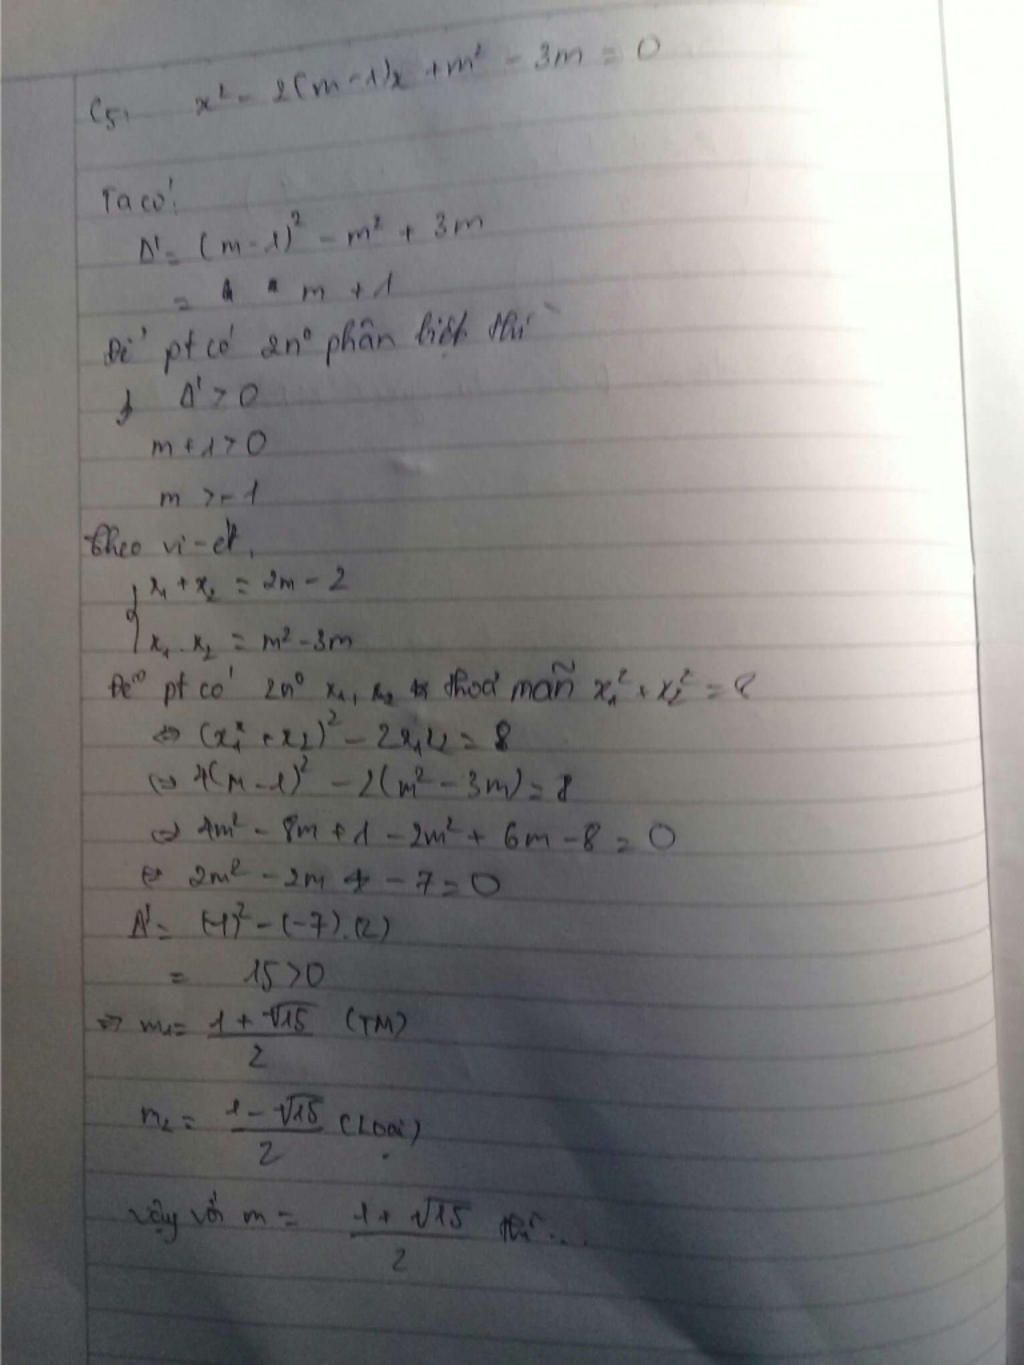 C5, x² - 2(m-1)x + m² - 3m = 0
Ta có:
Δ' = (m-1)² - m² + 3m
= m + 1
Để pt có 2n⁰ phân biệt thì
Δ' > 0
m + 1 > 0
m > -1
theo vi-ét,
{ x₁ + x₂ = 2m - 2
x₁ . x₂ = m² - 3m
Để pt có 2n⁰ x₁, x₂ thoả mãn x₁² + x₂² = 8
⇔ (x₁ + x₂)² - 2x₁x₂ = 8
⇔ 4(m-1)² - 2(m² - 3m) = 8
⇔ 4m² - 8m + 1 - 2m² + 6m - 8 = 0
⇔ 2m² - 2m - 7 = 0
Δ' = (-1)² - (-7).(2)
= 15 > 0
⇒ m₁ = (1 + √15)/2 (TM)
m₂ = (1 - √15)/2 (Loại)
Vậy với m = (1 + √15)/2 thì...